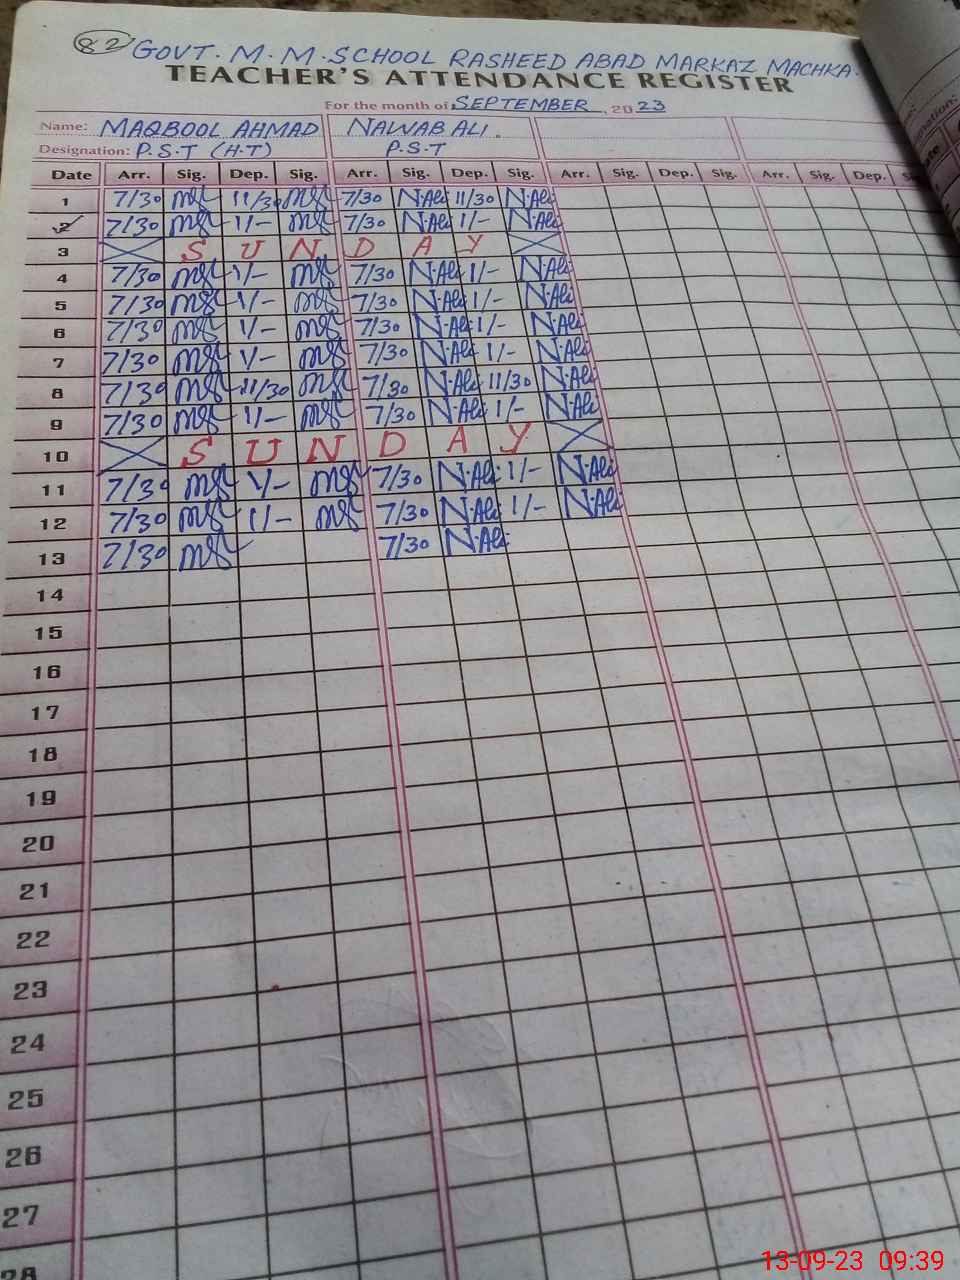 82 GOVT. M. M. SCHOOL RASHEED ABAD MARKAZ MACHKA.
TEACHER'S ATTENDANCE REGISTER
For the month of SEPTEMBER, 2023
Name: MAQBOOL AHMAD NAWAB ALI.
Designation: P.S.T (H.T) P.S.T
Date Arr. Sig. Dep. Sig. Arr. Sig. Dep. Sig. Arr. Sig. Dep. Sig. Arr. Sig. Dep.
1 7/30 11/30 7/30 N.Ali 11/30 N.Ali
2 7/30 1/- 7/30 N.Ali 1/- N.Ali
3 S U N D A Y
4 7/30 1/- 7/30 N.Ali 1/- N.Ali
5 7/30 1/- 7/30 N.Ali 1/- N.Ali
6 7/30 1/- 7/30 N.Ali 1/- N.Ali
7 7/30 1/- 7/30 N.Ali 1/- N.Ali
8 7/30 11/30 7/30 N.Ali 11/30 N.Ali
9 7/30 1/- 7/30 N.Ali 1/- N.Ali
10 S U N D A Y
11 7/30 1/- 7/30 N.Ali 1/- N.Ali
12 7/30 1/- 7/30 N.Ali 1/- N.Ali
13 7/30 7/30 N.Ali
14
15
16
17
18
19
20
21
22
23
24
25
26
27
28
13-09-23 09:39